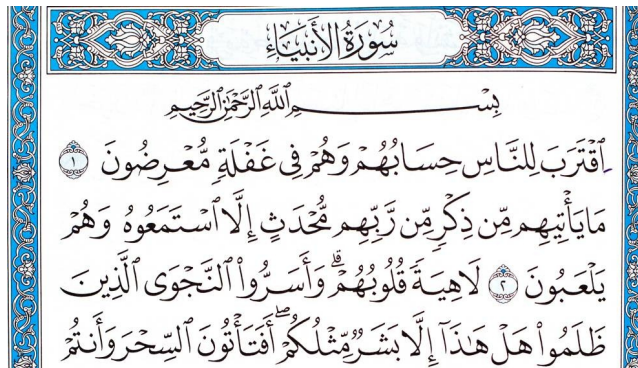 سُورَةُ الأَنبِيَاءِ
بِسْمِ اللَّهِ الرَّحْمَٰنِ الرَّحِيمِ
ٱقْتَرَبَ لِلنَّاسِ حِسَابُهُمْ وَهُمْ فِى غَفْلَةٍ مُّعْرِضُونَ ١
مَا يَأْتِيهِم مِّن ذِكْرٍ مِّن رَّبِّهِم مُّحْدَثٍ إِلَّا ٱسْتَمَعُوهُ وَهُمْ
يَلْعَبُونَ ٢ لَاهِيَةً قُلُوبُهُمْ ۗ وَأَسَرُّوا۟ ٱلنَّجْوَى ٱلَّذِينَ
ظَلَمُوا۟ هَلْ هَٰذَآ إِلَّا بَشَرٌ مِّثْلُكُمْ ۖ أَفَتَأْتُونَ ٱلسِّحْرَ وَأَنتُمْ